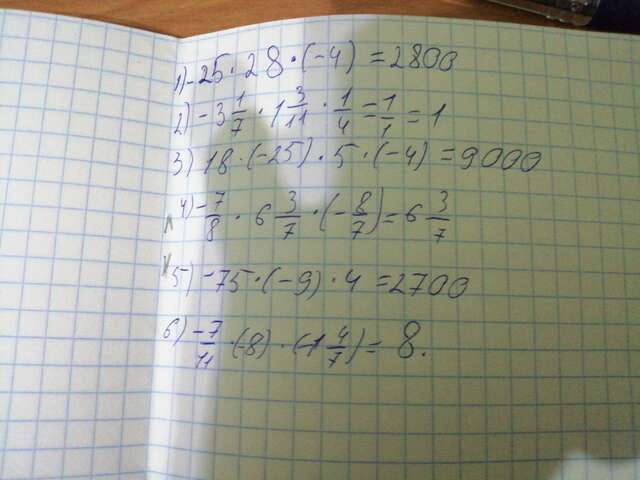 1) -25 · 28 · (-4) = 2800
2) -3 1/7 · 1 3/11 · 1/4 = 1/1 = 1
3) 18 · (-25) · 5 · (-4) = 9000
4) -7/8 · 6 3/7 · (-8/7) = 6 3/7
5) -75 · (-9) · 4 = 2700
6) -7/11 · (-8) · (-1 4/7) = 8.